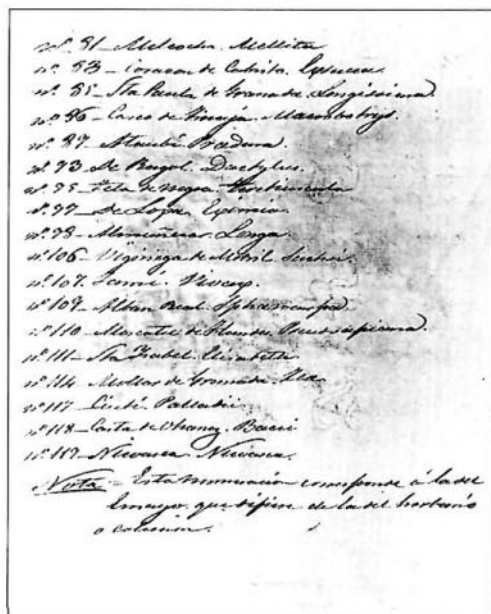 nº 81 - Melcocha. Mellita
nº 83 - Corazon de Cabrito.
nº 85 - Sta Paula de Granada. Longissima
nº 86 - Casco de Tinaja. Macrobotrys.
nº 87. Ataubí. Predura.
nº 73 De Ragol. Dactylus.
nº 75 - Teta de negra.
nº 77 - de Loja. Eximia.
nº 78 - Almuñecar. Longa.
nº 106 - Vigiriega de Motril.
nº 107. Jami.
nº 109. Alban Real.
nº 110 - Moscatel de Flandes.
nº 111 - Sta Isabel. Elisabetha
nº 114 - Mollar de Granada.
nº 117 - Palladii.
nº 118 - Casta de Ohanez.
nº 119 - Nevasca. Nivasca.
Nota - Esta numeracion corresponde á la del
Ensayo. que difiere de la del herbario
o coleccion.